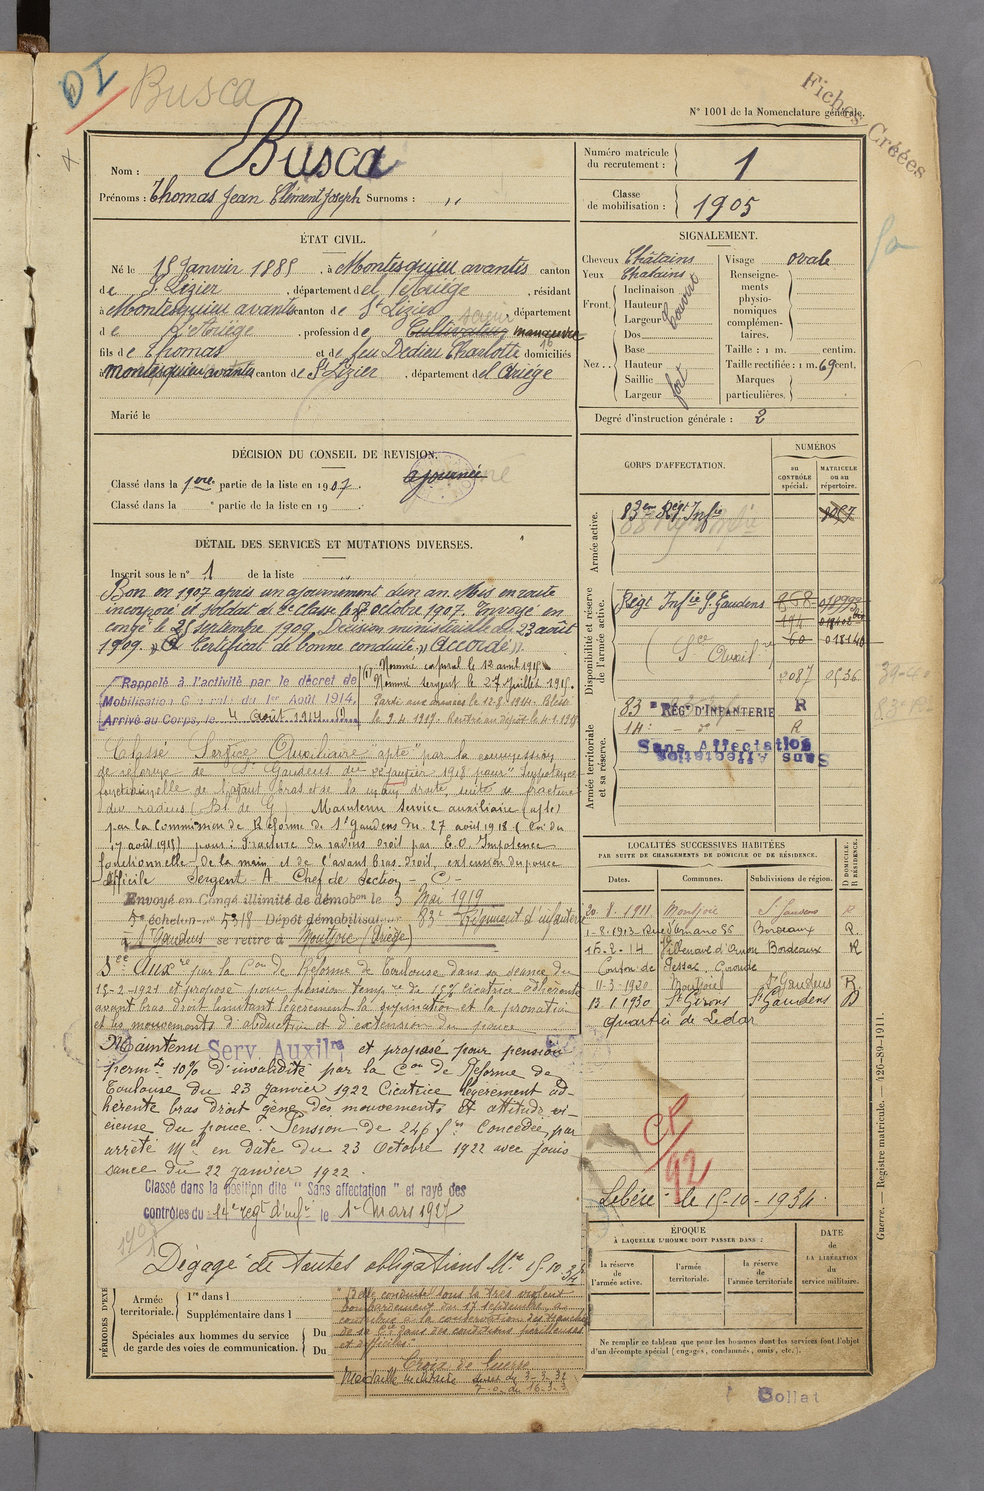 DI
Busca
N° 1001 de la Nomenclature générale.
Fiches Créées
Nom : Busca
Prénoms : Thomas Jean Clément Joseph Surnoms : ,,
Numéro matricule du recrutement : 1
Classe de mobilisation : 1905
ÉTAT CIVIL.
Né le 15 Janvier 1885, à Montesquieu avantès canton
de St Lizier, département de l'Ariège, résidant
à Montesquieu avantès canton de St Lizier, département
de l'Ariège, profession de Cultivateur manœuvre
fils de Thomas et de feu Dedieu Charlotte domiciliés
à Montesquieu avantès canton de St Lizier, département de l'Ariège
Marié le
SIGNALEMENT.
Cheveux Châtains
Yeux Chatains
Front. Inclinaison
Hauteur
Largeur
Nez.. Dos
Base
Hauteur
Saillie
Largeur
fort
Visage ovale
Renseignements physionomiques complémentaires.
Taille : 1 m. centim.
Taille rectifiée : 1 m. 69 cent.
Marques particulières.
Degré d'instruction générale : 2
DÉCISION DU CONSEIL DE REVISION.
Classé dans la 1ère partie de la liste en 1907.
Classé dans la ° partie de la liste en 19
ajournée
DÉTAIL DES SERVICES ET MUTATIONS DIVERSES.
Inscrit sous le n° 1 de la liste
Bon en 1907 après un ajournement d'un an. Mis en route
incorporé et soldat de 2e classe le 8 octobre 1907. Envoyé en
congé le 25 septembre 1909. Décision ministérielle du 23 août
1909. Certificat de bonne conduite "Accordé".
Rappelé à l'activité par le décret de
Mobilisation Générale du 1er Août 1914.
Arrivé au Corps, le 4 août 1914
(1) Nommé caporal le 12 avril 1915
Nommé sergent le 27 juillet 1915.
Parti aux armées le 12-8-1914. Blessé
Classé Service Auxiliaire "apte" par la commission
de réforme de St Gaudens du 22 janvier 1918 pour "impotence
fonctionnelle de l'avant bras et de la main droite, suite de fracture
du radius (Bl. de G.) Maintenu service auxiliaire (apte)
par la Commission de Réforme de St Gaudens du 27 août 1918 (Loi du
17 août 1915) pour : fracture du radius droit par E.O. Impotence
fonctionnelle de la main et de l'avant bras droit, extension du pouce
difficile Sergent - A Chef de Section - C -
Envoyé en Congé illimité de démobon le 3 Mai 1919
5e échelon n° 5318 Dépôt démobilisateur 83e Régiment d'infanterie
à St Gaudens se retire à Montjoie (Ariège)
Sce Auxre par la Con de Réforme de Toulouse dans sa séance du
15-2-1921 et proposé pour pension tempre de 15% cicatrice adhérente
avant bras droit limitant légèrement la supination et la pronation
et les mouvements d'abduction et d'extension du pouce
Maintenu Serv. Auxilre et proposé pour pension
permte 10% d'invalidité par la Con de Réforme de
Toulouse du 23 Janvier 1922 Cicatrice légèrement ad-
hérente bras droit gêne des mouvements et attitude vi-
cieuse du pouce. Pension de 246 frs Concédée par
arrêté Mel en date du 23 Octobre 1922 avec jouis
sance du 22 janvier 1922.
Classé dans la position dite " Sans affectation " et rayé des
contrôles du 14e regt d'infie le 1er Mars 1927
Dégagé de toutes obligations Mres 15.10.34
CORPS D'AFFECTATION.
NUMÉROS
au CONTRÔLE spécial.
MATRICULE ou au répertoire.
Armée active.
83eme Régt Infie
Disponibilité et réserve de l'armée active.
Régt Infie St Gaudens 858
194
60 018140
(Sce Auxilre) 2087 0536
Armée territoriale et sa réserve.
83e RÉGt D'INFANTERIE R
14e - d° - R
Sans Affectation
Sans Affectation
LOCALITÉS SUCCESSIVES HABITÉES
PAR SUITE DE CHANGEMENTS DE DOMICILE OU DE RÉSIDENCE.
Dates. Communes. Subdivisions de région. D DOMICILE. R RÉSIDENCE.
20-8-1911 Montjoie St Gaudens R
1-8-1913 Rue d'Ornano 56 Bordeaux R.
15-2-14 Villenave d'Ornon Bordeaux R
Canton de Pessac, Gironde
11-3-1920 Montjoie St Gaudens R.
13.1.1930 St Girons St Gaudens D
quartier de Ledar
CP/92
Libéré le 15-10-1934
ÉPOQUE
À LAQUELLE L'HOMME DOIT PASSER DANS :
la réserve de l'armée active.
l'armée territoriale.
la réserve de l'armée territoriale
DATE de LA LIBÉRATION du service militaire.
Ne remplir ce tableau que pour les hommes dont les services font l'objet
d'un décompte spécial (engagés, condamnés, omis, etc.).
PÉRIODES D'EXE
Armée territoriale.
1re dans l
Supplémentaire dans l
Spéciales aux hommes du service de garde des voies de communication.
Du
Du
"Belle conduite sous le très violent
bombardement du 17 septembre, a
contribué à la conservation des tranchées
de sa Cie dans des conditions périlleuses
et difficiles."
Croix de Guerre
Médaille militaire décret du 3-3-32
Guerre. — Registre matricule. — 426-89-1911.
Collat